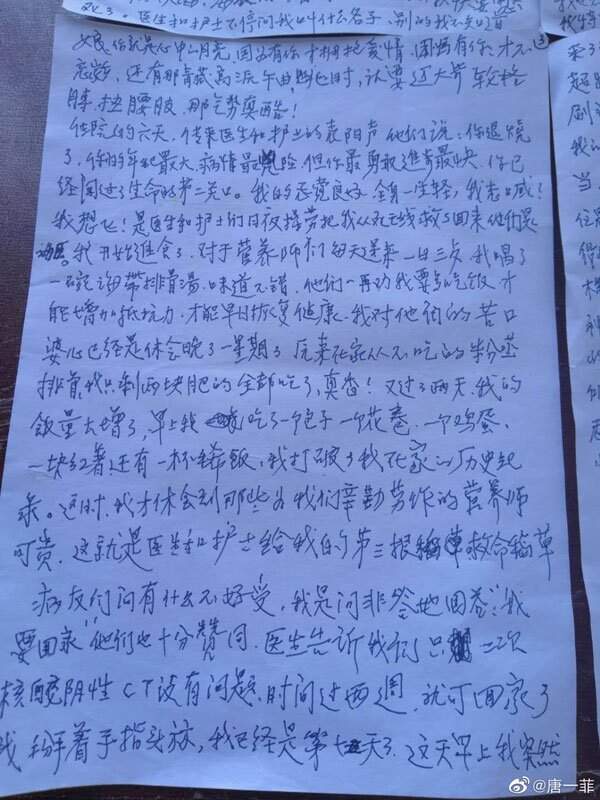 医生和护士不停问我叫什么名子,别的我不知道
娘,你就是心中的月亮,因为有你才拥抱爱情,因为有你,才不
还有那青藏高 认
膊,扭腰肢,那气势真酷!
住院的六天,传来医生和护士的表阳声他们说:你退烧
了,你的年纪最大,病情最危险,但你最勇敢進步最快,你已
经闯过了生命的第二关口。我的感觉良好,全身一生轻,我
我想飞!是医生和护士们日夜操劳把我从死亡线救了回来他们是
我开始進食了,对于营养师们每天送来一日三歺,我喝了
一碗海带排骨汤,味道不错,他们一再劝我要多吃饭,才
能增加抵抗力,才能早日恢复健康,我对他们的苦口
婆心已经是体会晚了一星期了,原来在家从不吃的粉蒸
排骨,我只剩两块肥的全部吃了,真香!又过了两天,我的
饭量大增了,早上我吃了一个包子一个花卷,一个鸡蛋,
一块红薯还有一杯稀饭,我打破了我在家的历史纪
录。这时,我才体会到那些为我们辛勤劳作的营养师
可贵,这就是医生和护士给我的第三根救命稻草
病友们问有什么不好受,我是问非答地回答:"我
要回家"他们也十分赞同,医生告诉我们只 二次
核酸阴性CT没有问题,时间过两週,就可回家了
我掰着手指头 ,我已经是第七天了,这天早上我突然
@唐一菲